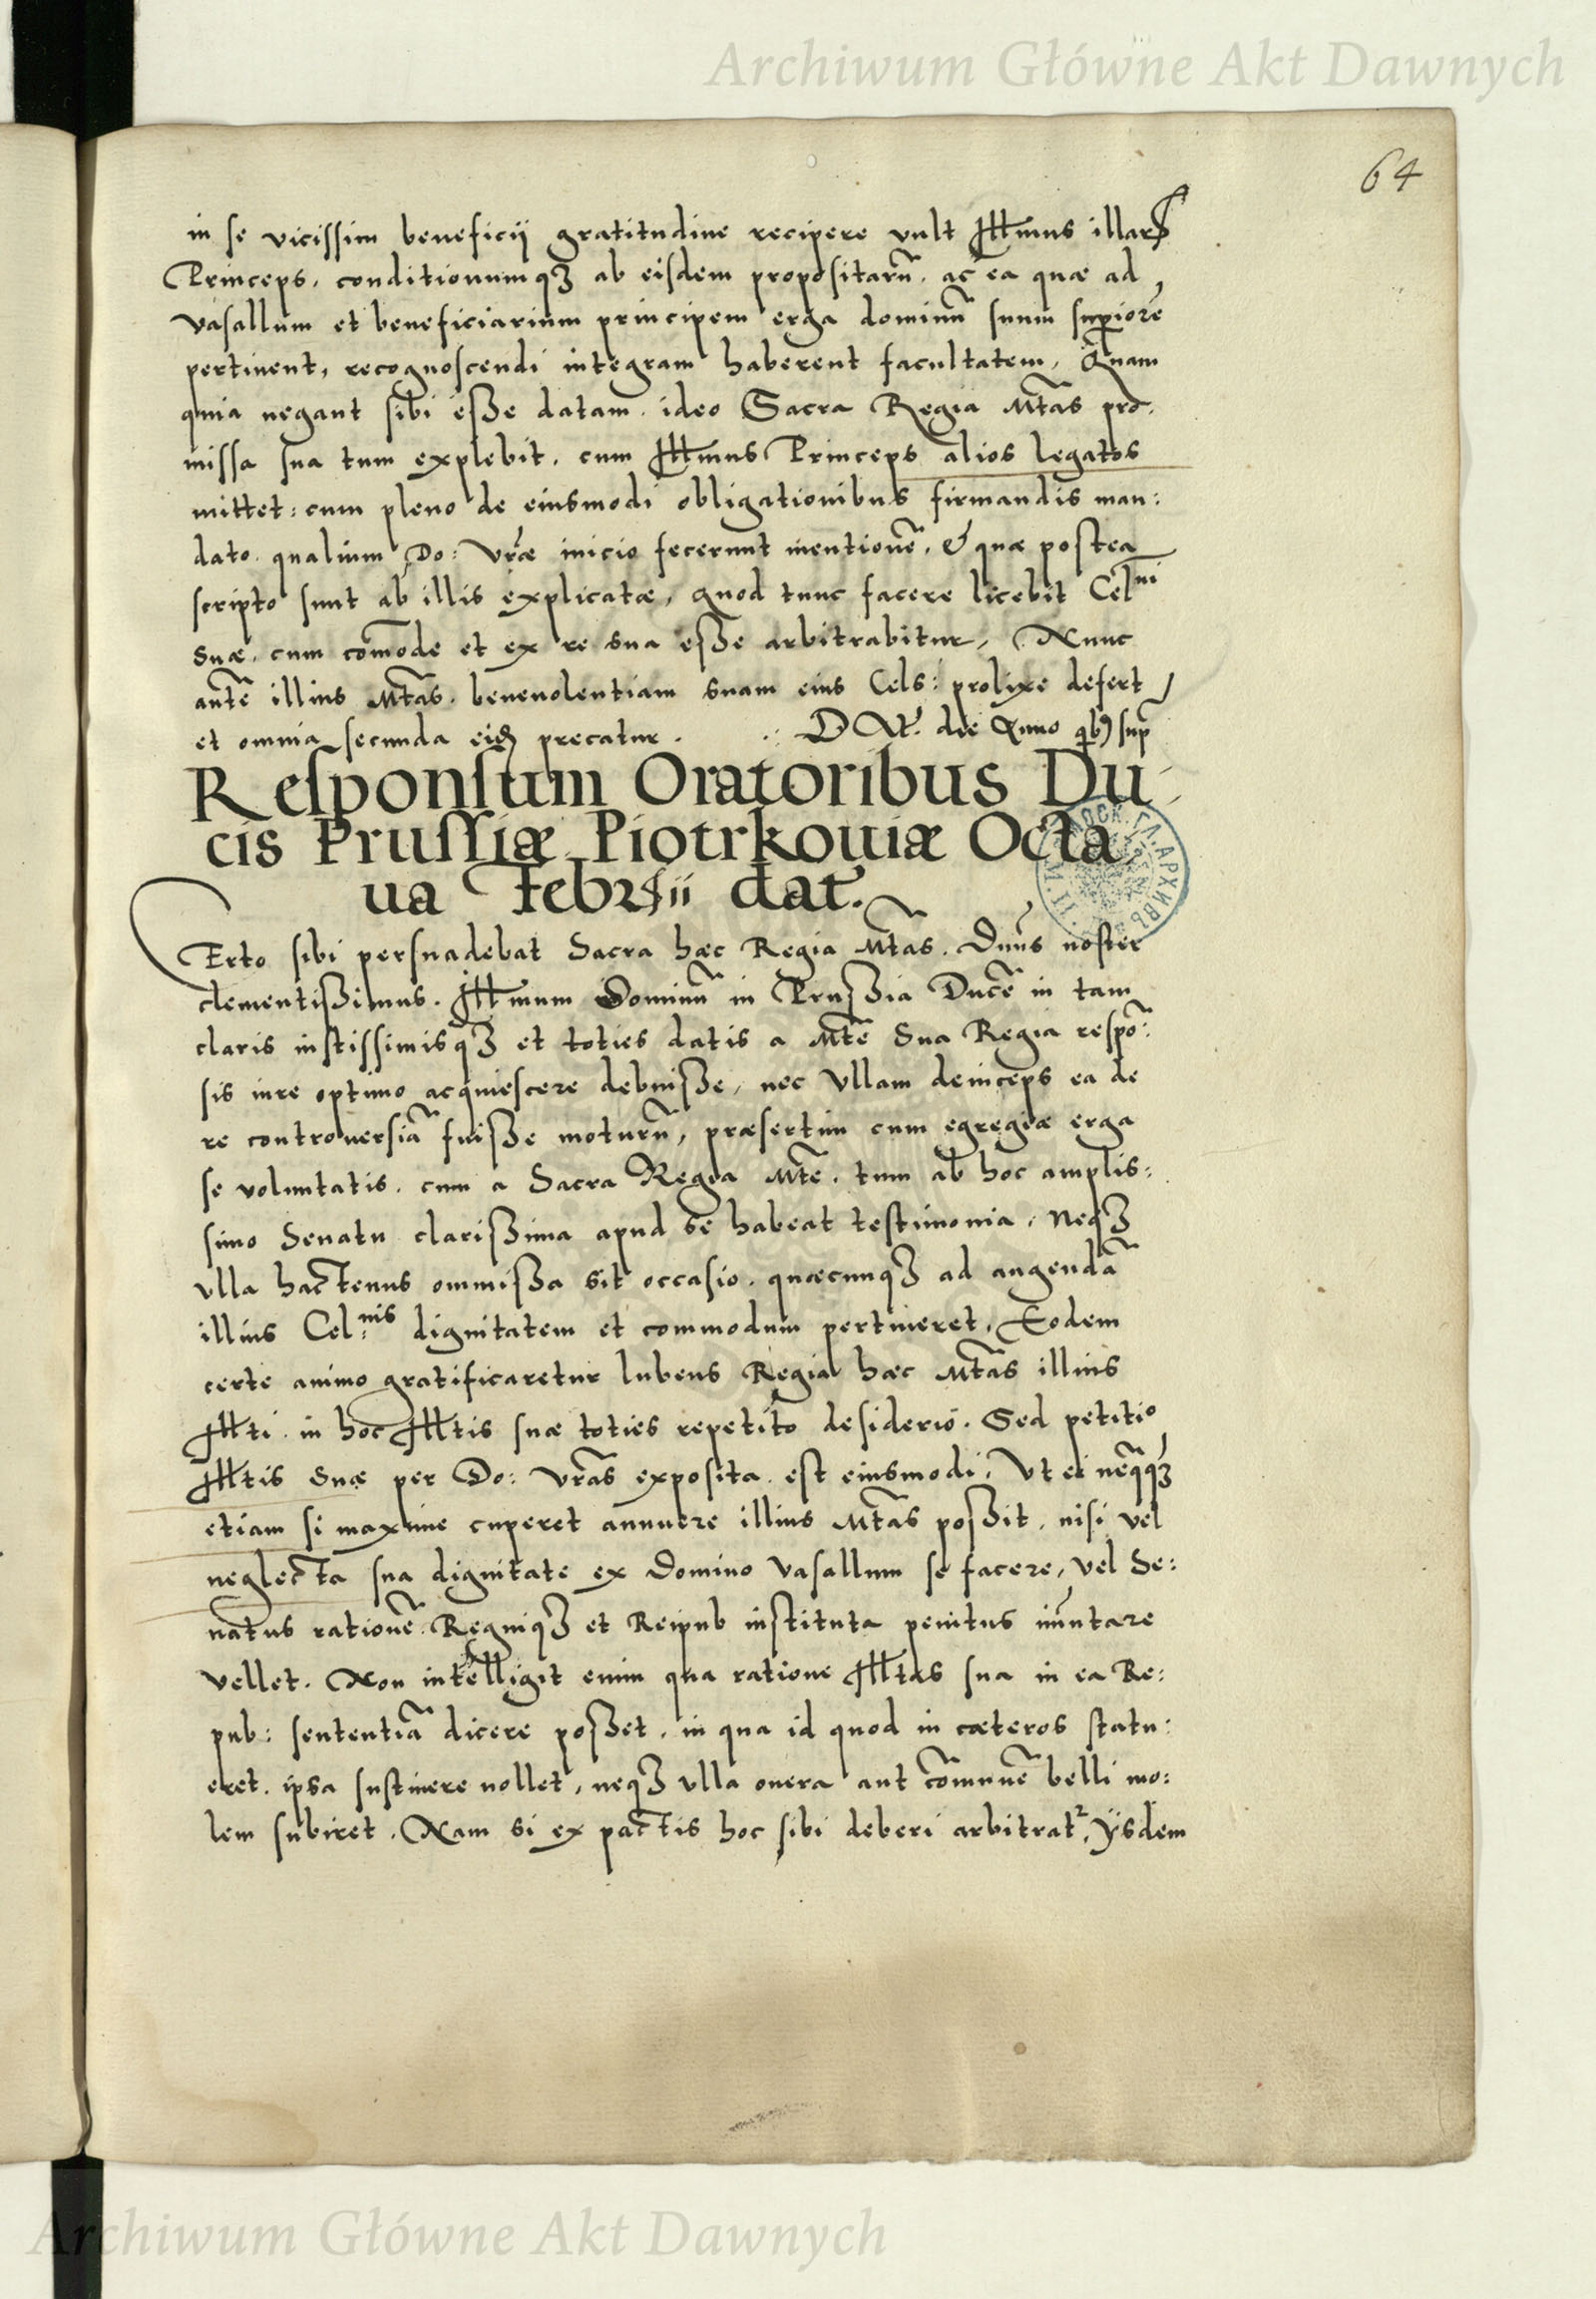 Archiwum Główne Akt Dawnych
64
in se vicissim beneficij gratitudine recipere vult Illmus illar
Princeps, conditionumqꝫ ab eisdem propositarũ, ac ea quæ ad
vasallum et beneficiarium principem erga dominũ suum supiorẽ
pertinent, recognoscendi integram haberent facultatem, Quam
quia negant sibi eße datam, ideo Sacra Regia Mtãs pro-
missa sua tum explebit, cum Illmus Princeps alios legatos
mittet: cum pleno de eiusmodi obligationibus firmandis man:
dato, qualium Do: Vræ inicio fecerunt mentionẽ, & quæ postea
scripto sunt ab illis explicatæ, quod tunc facere licebit Celni
suæ, cum cõmode et ex re sua eße arbitrabitur, Nunc
autẽ illius Mtãs, beneuolentiam suam eius Cels: prolixe defert
et omnia secunda eidẽ precatur. Dat. die Anno qb9 sup
Responsum Oratoribus Du-
cis Prussiæ Piotrkouiæ Octa
ua februarii dat.
Certo sibi persuadebat Sacra hæc Regia Mtãs, Dnũs noster
clementißimus, Illmum Dominũ in Prußia Ducẽ in tam
claris iustissimisqꝫ et toties datis a Mtẽ Sua Regia respõ:
sis iure optimo acquiescere debuiße, nec Vllam deinceps ea de
re controuersiã fuiße moturũ, præsertim cum egregiæ erga
se voluntatis, cum a Sacra Regia Mtẽ, tum ab hoc amplis:
simo Senatu clarißima apud se habeat testimonia, Neqꝫ
vlla hactenus ommißa sit occasio, quæcunqꝫ ad augendã
illius Cel:nis dignitatem et commodum pertineret, Eodem
certe animo gratificaretur lubens Regia hæc Mtãs illius
Illti, in hoc Illtis suæ toties repetito desiderio. Sed petitio
Illtis Suæ per Do: Vrãs exposita, est eiusmodi, Vt ei neq̃qꝫ
etiam si maxime cuperet annuere illius Mtãs poßit, nisi vel
neglecta sua dignitate ex Domino Vasallum se facere, vel Se:
natus rationẽ, Regniqꝫ et Reipub instituta penitus imutare
vellet. Non intelligit enim qua ratione Illtas sua in ea Re:
pub: sententiã dicere poßet, in qua id quod in cæteros statu:
eret, ipsa sustinere nollet, neqꝫ vlla onera aut cõmunẽ belli mo:
lem subiret, Nam si ex pactis hoc sibi deberi arbitrat², Ijsdem
Archiwum Główne Akt Dawnych